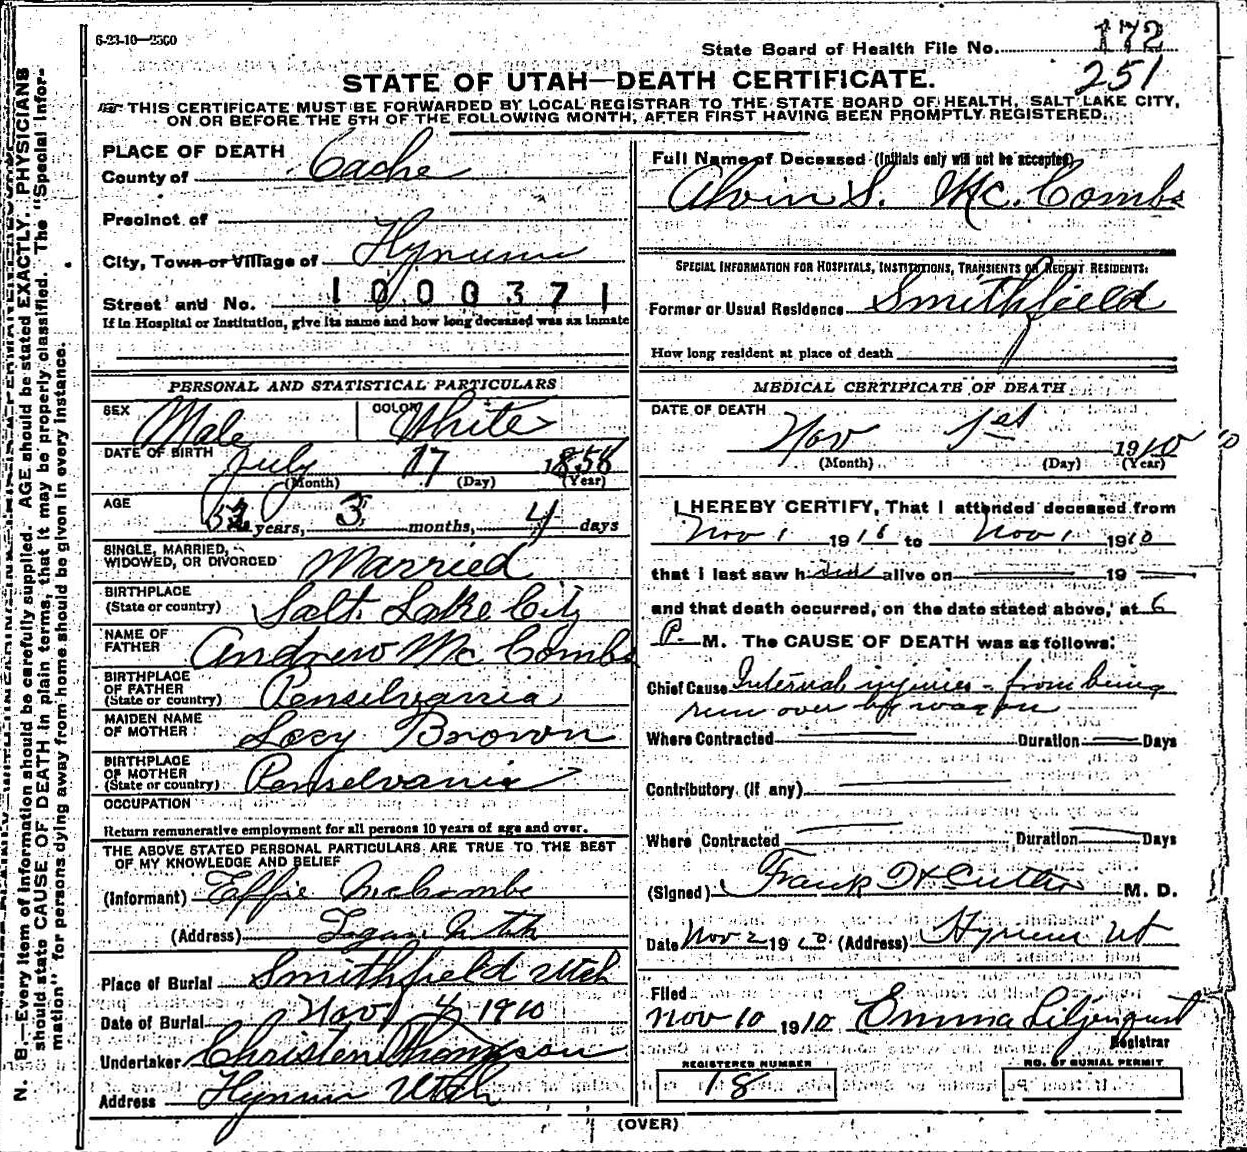 6-23-10—2500
State Board of Health File No. 172
251
STATE OF UTAH—DEATH CERTIFICATE.
THIS CERTIFICATE MUST BE FORWARDED BY LOCAL REGISTRAR TO THE STATE BOARD OF HEALTH, SALT LAKE CITY,
ON OR BEFORE THE 5TH OF THE FOLLOWING MONTH, AFTER FIRST HAVING BEEN PROMPTLY REGISTERED.
N. B.—Every item of information should be carefully supplied. AGE should be stated EXACTLY. PHYSICIANS
should state CAUSE OF DEATH in plain terms, that it may be properly classified. The "Special Infor-
mation" for persons dying away from home should be given in every instance.
PLACE OF DEATH
County of Cache
Precinct of
City, Town or Village of Hyrum
Street and No. 1000371
If in Hospital or Institution, give its name and how long deceased was an inmate
PERSONAL AND STATISTICAL PARTICULARS
SEX Male COLOR White
DATE OF BIRTH July 17 1858
(Month) (Day) (Year)
AGE 52 years, 3 months, 4 days
SINGLE, MARRIED,
WIDOWED, OR DIVORCED Married
BIRTHPLACE
(State or country) Salt Lake City
NAME OF
FATHER Andrew Mc Combs
BIRTHPLACE
OF FATHER
(State or country) Pensilvania
MAIDEN NAME
OF MOTHER Locy Brown
BIRTHPLACE
OF MOTHER
(State or country) Penselvania
OCCUPATION
Return remunerative employment for all persons 10 years of age and over.
THE ABOVE STATED PERSONAL PARTICULARS ARE TRUE TO THE BEST
OF MY KNOWLEDGE AND BELIEF
(Informant) Effie Mccombs
(Address) Logan Utah
Place of Burial Smithfield Utah
Date of Burial Nov 4 1910
Undertaker Christen Thomsson
Address Hyrum Utah
Full Name of Deceased (Initials only will not be accepted)
Alvin S. Mc. Combs
SPECIAL INFORMATION FOR HOSPITALS, INSTITUTIONS, TRANSIENTS OR RECENT RESIDENTS:
Former or Usual Residence Smithfield
How long resident at place of death
MEDICAL CERTIFICATE OF DEATH
DATE OF DEATH
Nov 1st 1910 10
(Month) (Day) (Year)
I HEREBY CERTIFY, That I attended deceased from
Nov 1 1910 to Nov 1 1910
that I last saw h alive on 19
and that death occurred, on the date stated above, at 6
P. M. The CAUSE OF DEATH was as follows:
Chief Cause Internal injuries - from being
run over by wagon
Where Contracted Duration Days
Contributory (if any)
Where Contracted Duration Days
(Signed) Frank H Cutler M. D.
Date Nov 2 1910 (Address) Hyrum Ut
Filed
Nov 10 1910 Emma Liljenquist
Registrar
REGISTERED NUMBER NO. OF BURIAL PERMIT
18
(OVER)